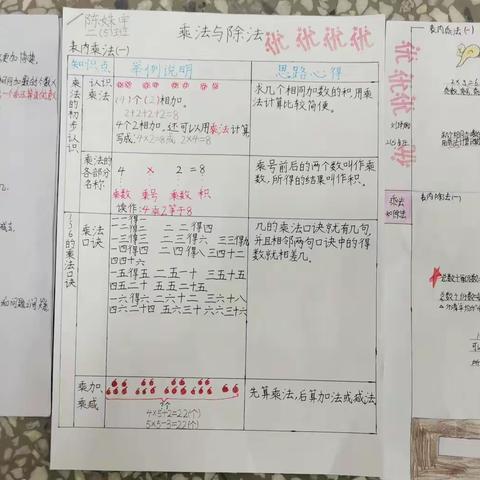 陈姝甲
二(5)班
乘法与除法
优优优优
表内乘法(一)
知识点 举例说明 思路心得
乘法的初步认识
认识乘法
(4)个(2)相加。
2+2+2+2=8
4个2相加。还可以用乘法计算,
写成:4×2=8或2×4=8
求几个相同加数的积,用乘
法计算比较简便。
乘法的各部分名称
4 × 2 = 8
乘数 乘号 乘数 积
读作:4乘2等于8
乘号前后的两个数叫作乘
数,所得的结果叫作积。
1~6的乘法口诀
乘法口诀
一一得一
一二得二 二二得四
一三得三 二三得六 三三得九
一四得四 二四得八 三四十二
四四十六
一五得五 二五一十 三五十五
四五二十 五五二十五
一六得六 二六十二 三六十八
四六二十四 五六三十 六六三十六
几的乘法口诀就有几句,
并且相邻两句口诀中的得
数就相差几。
乘加、乘减
4×5+2=22(个)
5×5-3=22(个)
先算乘法,后算加法或减法。
优优优
乘法
表内乘法(一)
表内乘法(一)